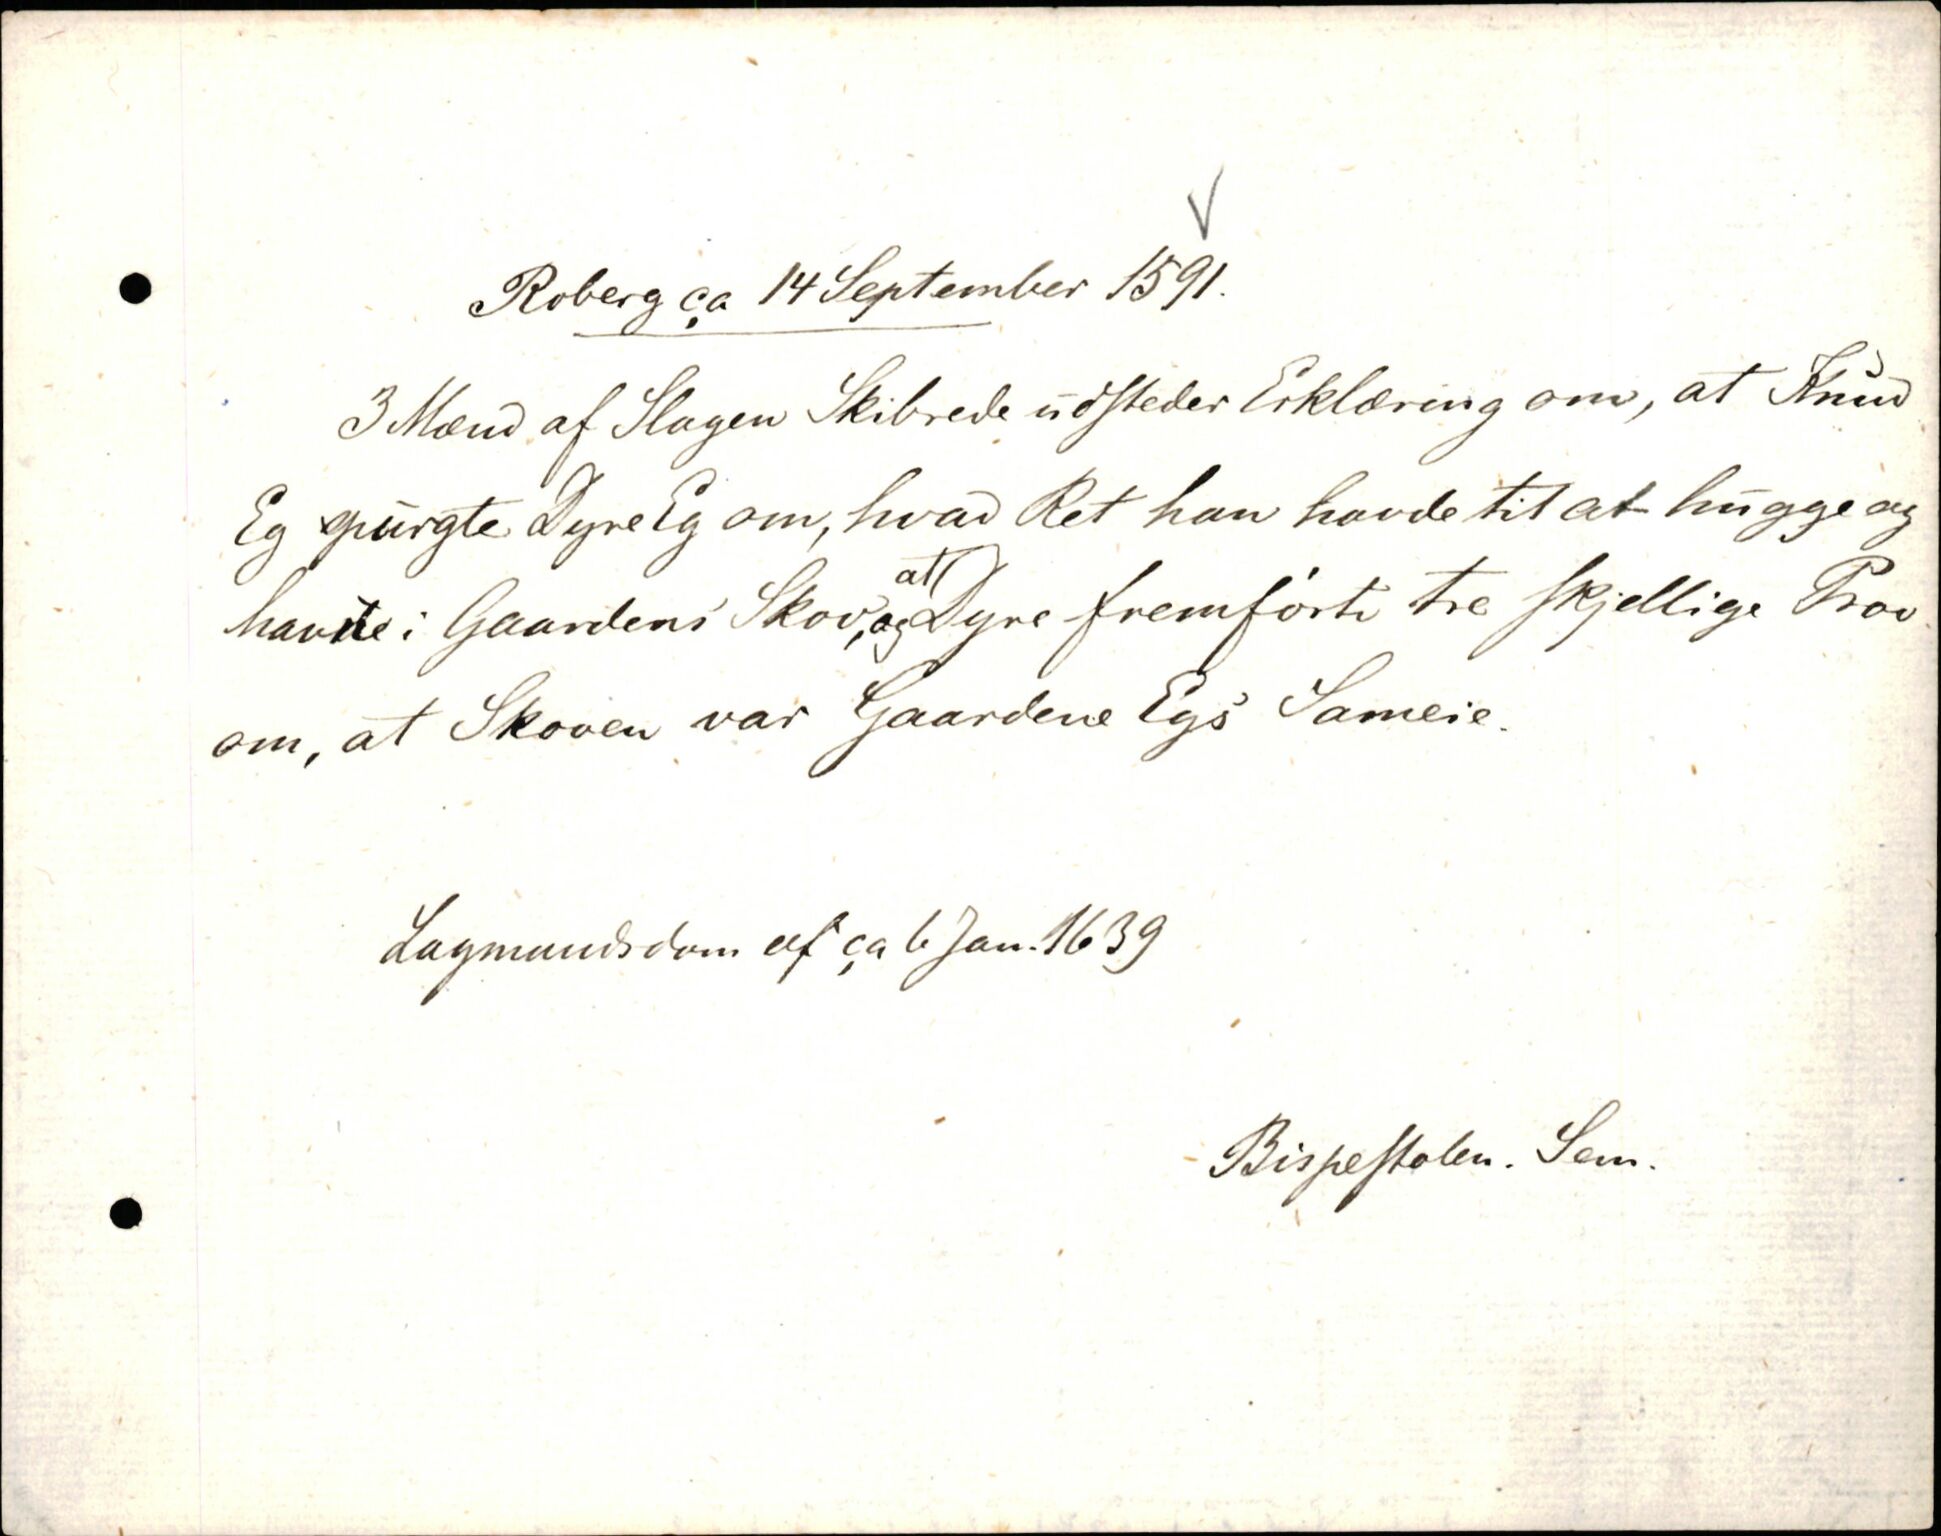 Roberg ça 14 September 1591.
3 Mænd af Slagen Skibrede udsteder Erklæring om, at Knud
Eg spurgte Dyre Eg om, hvad Ret han havde til at hugge og
havde i Gaardens Skov, og at Dyre fremførte tre skjellige Prov
om, at Skoven var Gaardene Egs Sameie.
Lagmandsdom af ça 6 Jan. 1639
Bispestolen. Sem.